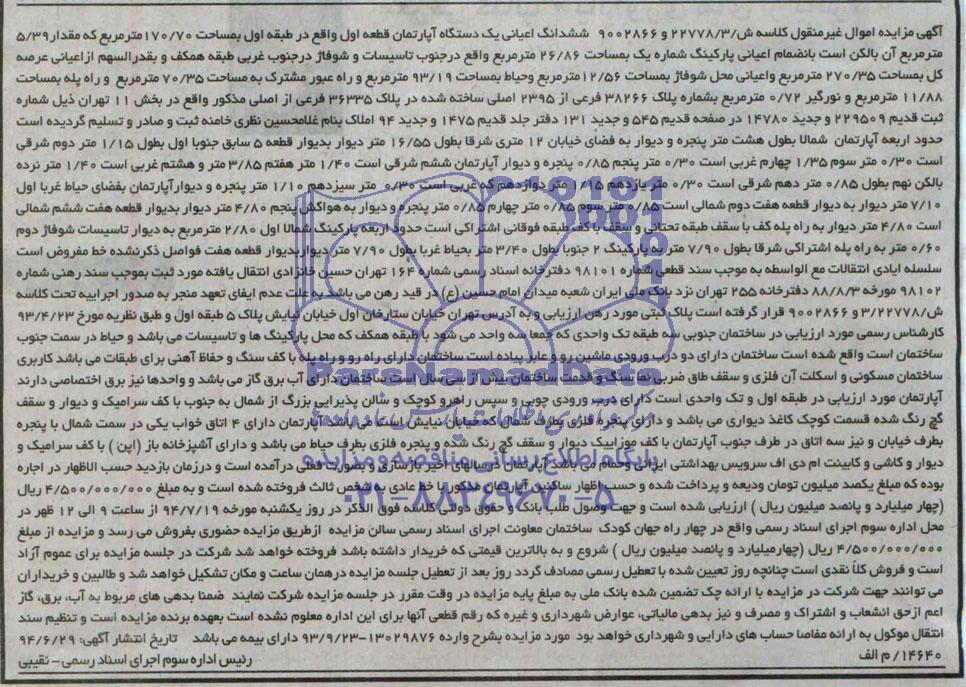 آگهی مزایده اموال غیرمنقول کلاسه ش/۲۲۷۷۸/۳ و ۹۰۰۲۸۶۶ ششدانگ اعیانی یک دستگاه آپارتمان قطعه اول واقع در طبقه اول بمساحت ۱۷۰/۷۰مترمربع که مقدار۵/۳۹
مترمربع آن بالکن است بانضمام اعیانی پارکینگ شماره یک بمساحت ۲۶/۸۶ مترمربع واقع درجنوب تاسیسات و شوفاژ درجنوب غربی طبقه همکف و بقدرالسهم ازاعیانی عرصه
کل بمساحت ۲۷۰/۳۵ مترمربع واعیانی محل شوفاژ بمساحت ۱۲/۵۶مترمربع وحیاط بمساحت ۹۳/۱۹ مترمربع و راه عبور مشترک به مساحت ۷۰/۳۵ مترمربع و راه پله بمساحت
۱۱/۸۸ مترمربع و نورگیر ۰/۷۲ مترمربع بشماره پلاک ۳۸۲۶۶ فرعی از ۲۳۹۵ اصلی ساخته شده در پلاک ۳۶۳۳۵ فرعی از اصلی مذکور واقع در بخش ۱۱ تهران ذیل شماره
ثبت قدیم ۲۲۹۵۰۹ و جدید ۱۴۷۸۰ در صفحه قدیم ۵۴۵ و جدید ۱۳۱ دفتر جلد قدیم ۱۴۷۵ و جدید ۹۴ املاک بنام غلامحسین نظری خامنه ثبت و صادر و تسلیم گردیده است
حدود اربعه آپارتمان شمالا بطول هشت متر پنجره و دیوار به فضای خیابان ۱۲ متری شرقا بطول ۱۶/۵۵ متر دیوار بدیوار قطعه ۵ سابق جنوبا اول بطول ۱/۱۵ متر دوم شرقی
است ۰/۳۰ متر سوم ۱/۳۵ چهارم غربی است ۰/۳۰ متر پنجم ۰/۸۵ پنجره و دیوار آپارتمان ششم شرقی است ۱/۴۰ متر هفتم ۳/۸۵ متر و هشتم غربی است ۱/۴۰ متر نرده
بالکن نهم بطول ۰/۸۵ متر دهم شرقی است ۰/۳۰ متر یازدهم ۱/۱۵ متر دوازدهم که غربی است ۰/۳۰ متر سیزدهم ۱/۱۰ متر پنجره و دیوارآپارتمان بفضای حیاط غربا اول
۷/۱۰ متر دیوار به دیوار قطعه هفت دوم شمالی است ۰/۸۵ متر سوم ۰/۸۵ متر چهارم ۰/۸۵ متر پنجره و دیوار به هواکش پنجم ۴/۸۰ متر دیوار بدیوار قطعه هفت ششم شمالی
است ۴/۸۰ متر دیوار به راه پله کف با سقف طبقه تحتانی و سقف با کف طبقه فوقانی اشتراکی است حدود اربعه پارکینگ شمالا اول ۲/۸۰ مترمربع به دیوار تاسیسات شوفاژ دوم
۰/۶۰ متر به راه پله اشتراکی شرقا بطول ۷/۹۰ متر به پارکینگ ۲ جنوبا بطول ۳/۴۰ متر بحیاط غربا بطول ۷/۹۰ متر دیواربدیوار قطعه هفت فواصل ذکرنشده خط مفروض است
سلسله ایادی انتقالات مع الواسطه به موجب سند قطعی شماره ۹۸۱۰۱ دفترخانه اسناد رسمی شماره ۱۶۴ تهران حسین خانزادی انتقال یافته مورد ثبت بموجب سند رهنی شماره
۹۸۱۰۲ مورخه ۸۸/۸/۳ دفترخانه ۲۵۵ تهران نزد بانک ملی ایران شعبه میدان امام حسین (ع) در قید رهن می باشد به علت عدم ایفای تعهد منجر به صدور اجراییه تحت کلاسه
ش/۳/۲۲۷۷۸ و ۹۰۰۲۸۶۶ قرار گرفته است پلاک ثبتی مورد رهن ارزیابی و به آدرس تهران خیابان ستارخان اول خیابان نیایش پلاک ۵ طبقه اول و طبق نظریه مورخ ۹۳/۴/۲۳
کارشناس رسمی مورد ارزیابی در ساختمان جنوبی سه طبقه تک واحدی که جمعا سه واحد می شود با طبقه همکف که محل پارکینگ ها و تاسیسات می باشد و حیاط در سمت جنوب
ساختمان است واقع شده است ساختمان دارای دو درب ورودی ماشین رو و عابر پیاده است ساختمان دارای راه رو و راه پله با کف سنگ و حفاظ آهنی برای طبقات می باشد کاربری
ساختمان مسکونی و اسکلت آن فلزی و سقف طاق ضربی نما سنگ و قدمت ساختمان بیش از سی سال است ساختمان دارای آب برق گاز می باشد و واحدها نیز برق اختصاصی دارند
آپارتمان مورد ارزیابی در طبقه اول و تک واحدی است دارای درب ورودی چوبی و سپس راهرو کوچک و سالن پذیرایی بزرگ از شمال به جنوب با کف سرامیک و دیوار و سقف
گچ رنگ شده قسمت کوچک کاغذ دیواری می باشد و دارای پنجره فلزی بطرف شمال که خیابان نیایش است می باشد آپارتمان دارای ۴ اتاق خواب یکی در سمت شمال با پنجره
بطرف خیابان و نیز سه اتاق در طرف جنوب آپارتمان با کف موزاییک دیوار و سقف گچ رنگ شده و پنجره فلزی بطرف حیاط می باشد و دارای آشپزخانه باز (اپن ) با کف سرامیک و
دیوار و کاشی و کابینت ام دی اف سرویس بهداشتی ایرانی وحمام می باشد آپارتمان درسالهای اخیر بازسازی و بصورت فعلی درآمده است و درزمان بازدید حسب الاظهار در اجاره
بوده که مبلغ یکصد میلیون تومان ودیعه و پرداخت شده و حسب اظهار ساکنین آپارتمان مذکور با خط عادی به شخص ثالث فروخته شده است و به مبلغ ۴/۵۰۰/۰۰۰/۰۰۰ ریال
(چهار میلیارد و پانصد میلیون ریال ) ارزیابی شده است و جهت وصول طلب بانک و حقوق دولتی کلاسه فوق الذکر در روز یکشنبه مورخه ۹۴/۷/۱۹ از ساعت ۹ الی ۱۲ ظهر در
محل اداره سوم اجرای اسناد رسمی واقع در چهار راه جهان کودک ساختمان معاونت اجرای اسناد رسمی سالن مزایده ازطریق مزایده حضوری بفروش می رسد و مزایده از مبلغ
۴/۵۰۰/۰۰۰/۰۰۰ ریال (چهارمیلیارد و پانصد میلیون ریال ) شروع و به بالاترین قیمتی که خریدار داشته باشد فروخته خواهد شد شرکت در جلسه مزایده برای عموم آزاد
است و فروش کلاً نقدی است چنانچه روز تعیین شده با تعطیل رسمی مصادف گردد روز بعد از تعطیل جلسه مزایده درهمان ساعت و مکان تشکیل خواهد شد و طالبین و خریداران
می توانند جهت شرکت در مزایده با ارائه چک تضمین شده بانک ملی به مبلغ پایه مزایده در وقت مقرر در جلسه مزایده شرکت نمایند ضمنا بدهی های مربوط به آب، برق، گاز
اعم ازحق انشعاب و اشتراک و مصرف و نیز بدهی مالیاتی، عوارض شهرداری و غیره که رقم قطعی آنها برای این اداره معلوم نشده است بعهده برنده مزایده است و تنظیم سند
انتقال موکول به ارائه مفاصا حساب های دارایی و شهرداری خواهد بود مورد مزایده بشرح وارده ۱۳۰۲۹۸۷۶-۹۳/۹/۲۳ دارای بیمه می باشد تاریخ انتشار آگهی: ۹۴/۶/۲۹
۱۴۶۴۰/ م الف رئیس اداره سوم اجرای اسناد رسمی – نقیبی
ParsNamadData
پایگاه اطلاع رسانی مناقصه و مزایده
۰۲۱-۸۸۳۴۹۶۷۰-۵